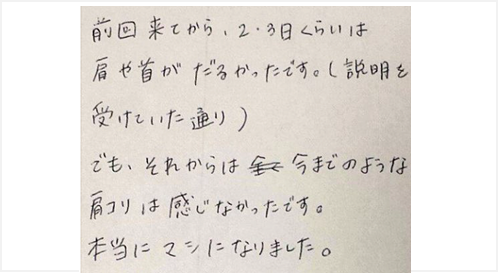 前回来てから、2・3日くらいは
肩や首がだるかったです。(説明を
受けていた通り)
でも、それからは 今までのような
肩コリは感じなかったです。
本当にマシになりました。